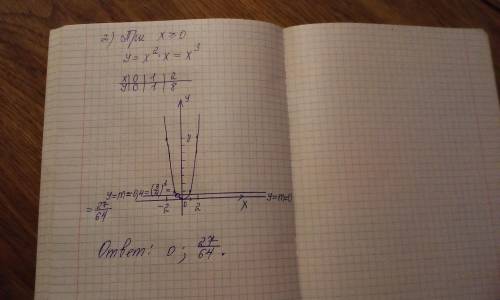 2) При x ≥ 0
y = x² · x = x³
x | 0 | 1 | 2
y | 0 | 1 | 8
y
8
y=m=
y=m=0
= 27/64
-2 0 2 x
Ответ: 0; 27/64.